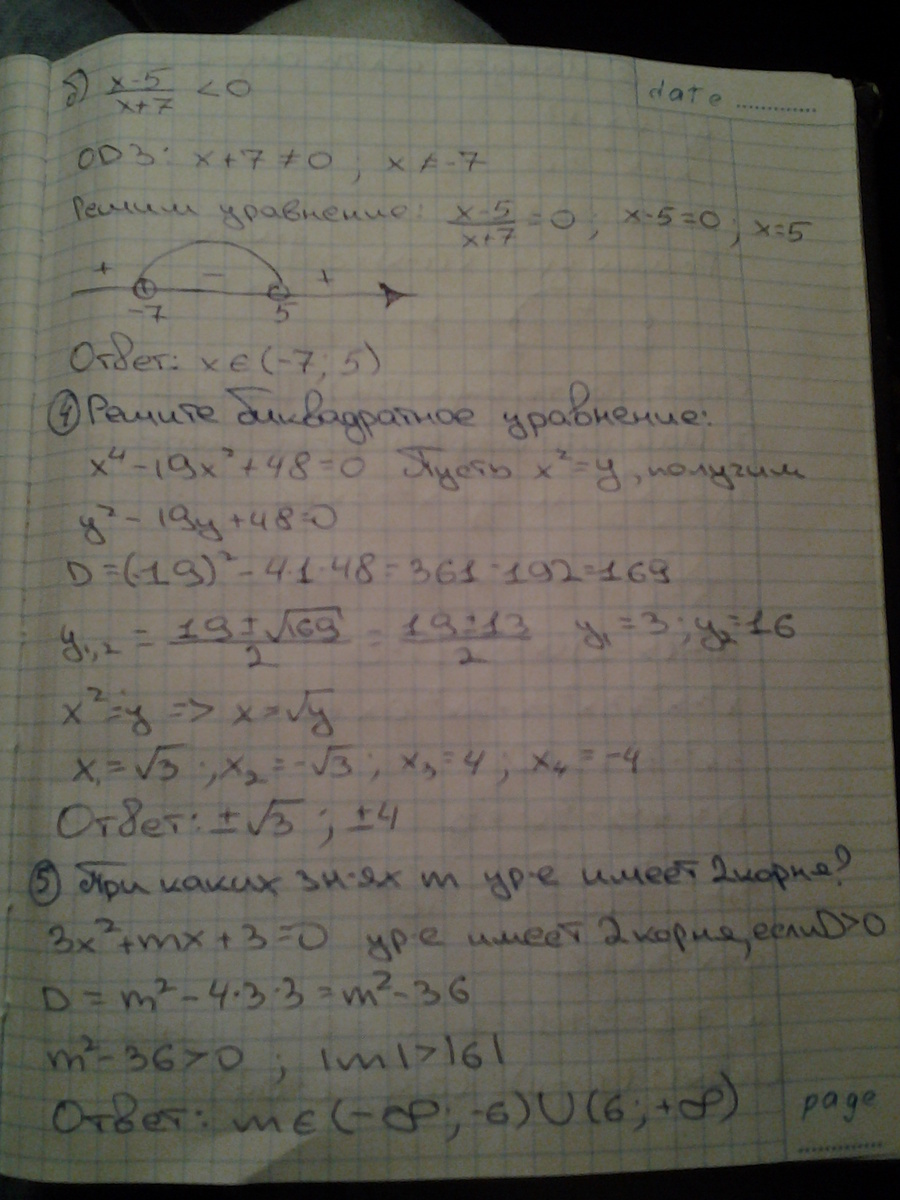 б) x-5/x+7 < 0
date ............
ОДЗ: x+7≠0 ; x≠-7
Решим уравнение: x-5/x+7 = 0 ; x-5=0 ; x=5
+ - +
-7 5
Ответ: x∈(-7; 5)
④ Решите биквадратное уравнение:
x⁴-19x²+48=0 Пусть x²=y, получим
y²-19y+48=0
D=(-19)²-4·1·48=361-192=169
y₁,₂ = 19±√169/2 = 19±13/2 y₁=3 ; y₂=16
x²=y => x=√y
x₁=√3 ; x₂=-√3 ; x₃=4 ; x₄=-4
Ответ: ±√3 ; ±4
⑤ При каких зн-ях m ур-е имеет 2 корня?
3x²+mx+3=0 ур-е имеет 2 корня, если D>0
D = m²-4·3·3=m²-36
m²-36>0 ; |m|>|6|
Ответ: m∈(-∞; -6)∪(6; +∞)
page
............